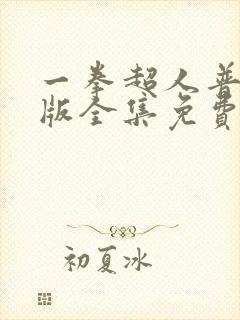 一拳超人普
版全集免费
初夏冰